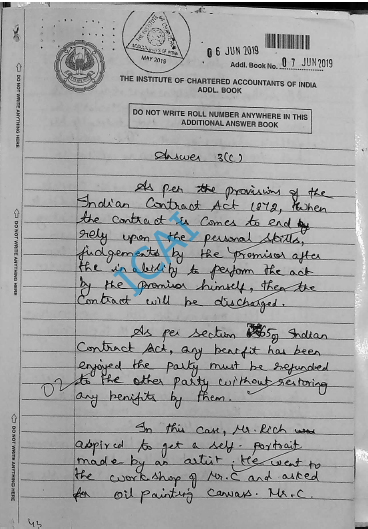 MAY 2019
06 JUN 2019
Addl. Book No. 07 JUN 2019
THE INSTITUTE OF CHARTERED ACCOUNTANTS OF INDIA
ADDL. BOOK
DO NOT WRITE ROLL NUMBER ANYWHERE IN THIS
ADDITIONAL ANSWER BOOK
DO NOT WRITE ANYTHING HERE
DO NOT WRITE ANYTHING HERE
DO NOT WRITE ANYTHING HERE
ICAI
Answer 3(c)
As per the provisions of the
Indian Contract Act 1872, when
the contract is comes to end by
rely upon the personal skills,
judgements by the promisor after
the inability to perform the act
by the promisor himself, then the
Contract will be discharged.
As per section 65 of Indian
Contract Act, any benefit has been
enjoyed the party must be refunded
to the other party without restoring
any benefits by them.
02
In this case, Mr. Rich
aspired to get a self-portrait
made by an artist. He went to
the workshop of Mr. C and asked
for oil painting canvas. Mr. C.